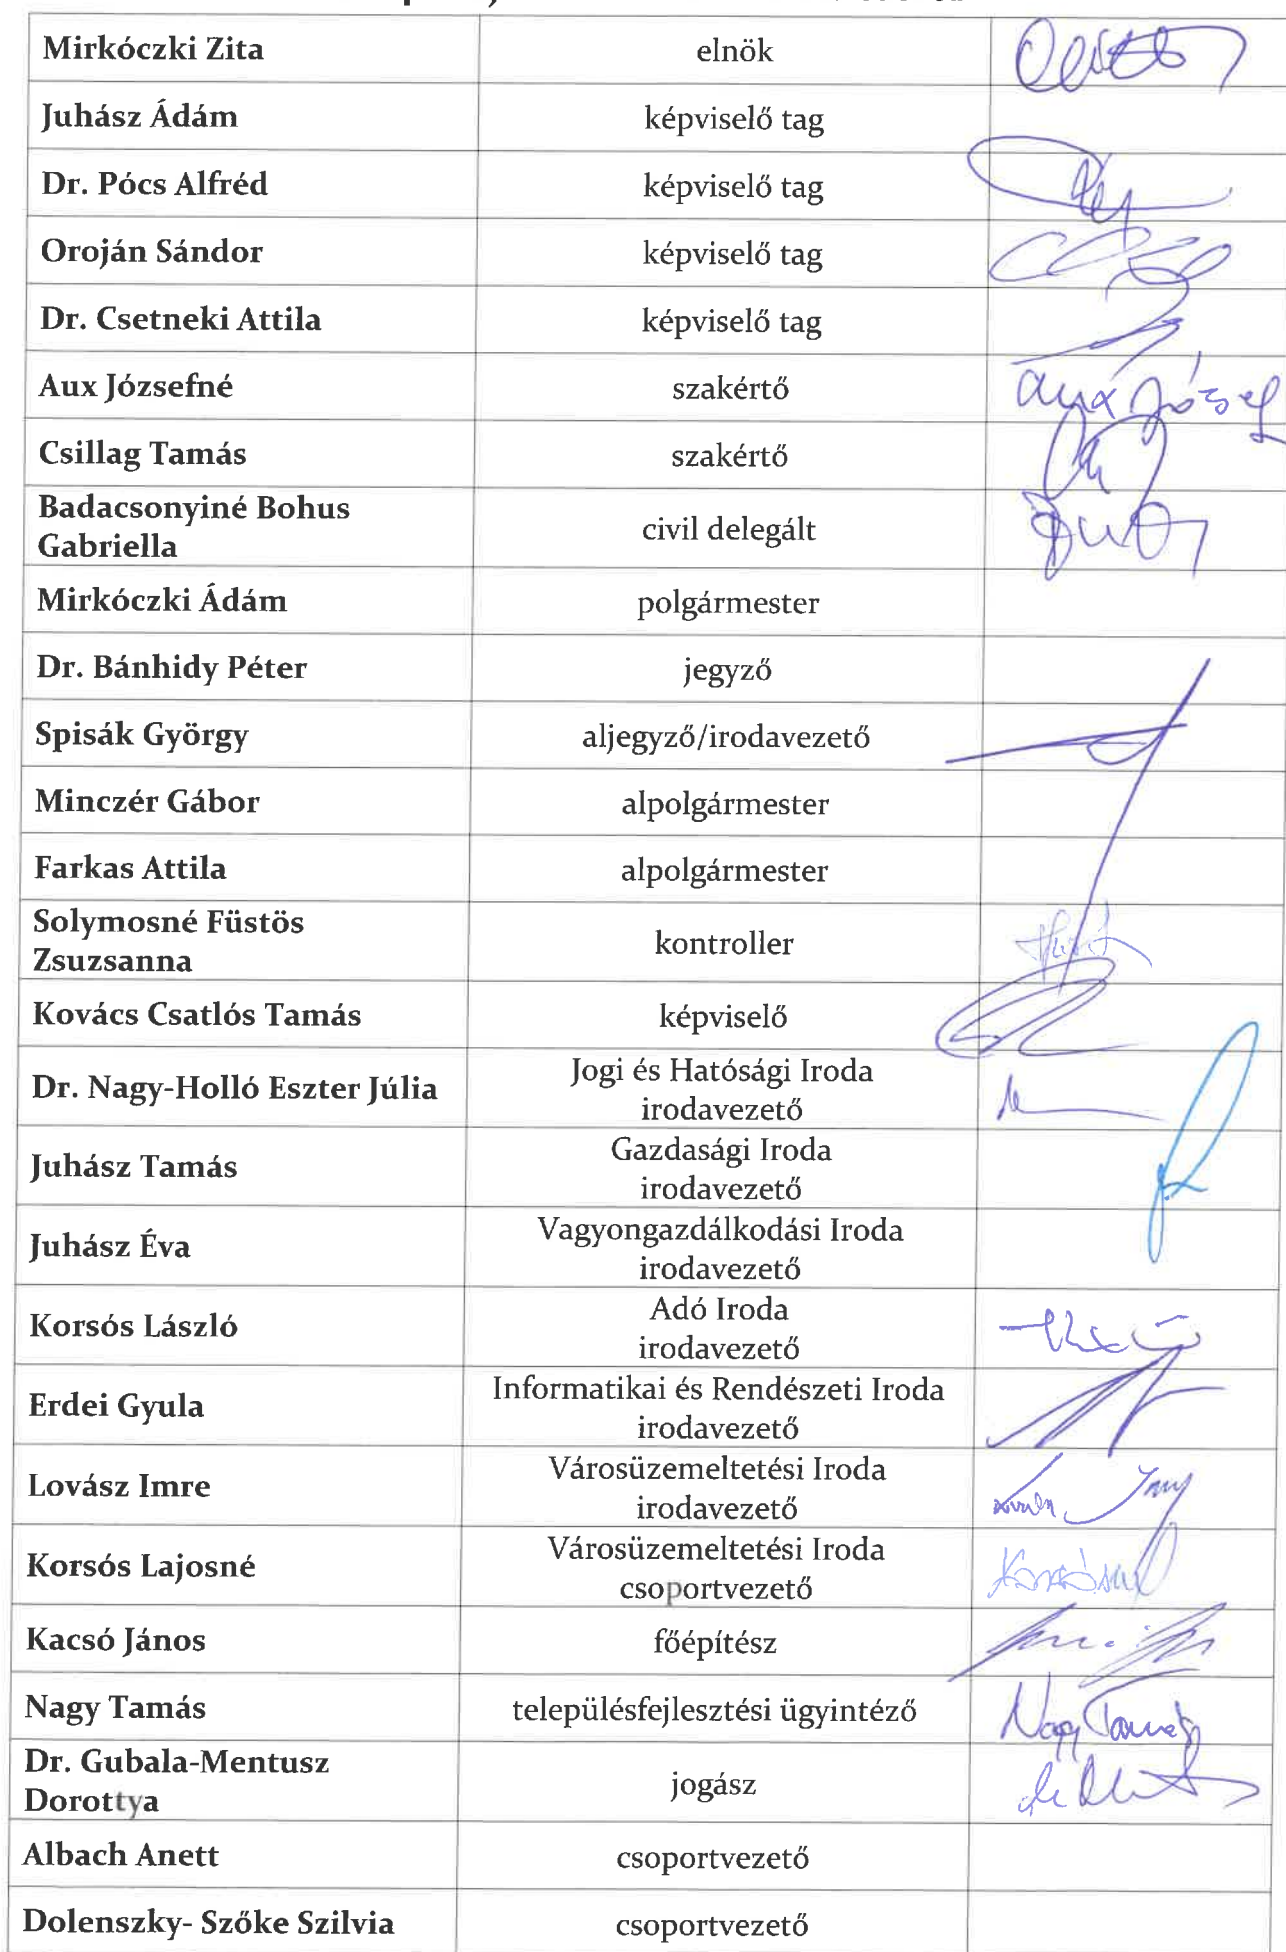 Mirkóczki Zita elnök
Juhász Ádám képviselő tag
Dr. Pócs Alfréd képviselő tag
Oroján Sándor képviselő tag
Dr. Csetneki Attila képviselő tag
Aux Józsefné szakértő Aux József
Csillag Tamás szakértő
Badacsonyiné Bohus
Gabriella civil delegált
Mirkóczki Ádám polgármester
Dr. Bánhidy Péter jegyző
Spisák György aljegyző/irodavezető
Minczér Gábor alpolgármester
Farkas Attila alpolgármester
Solymosné Füstös
Zsuzsanna kontroller
Kovács Csatlós Tamás képviselő
Dr. Nagy-Holló Eszter Júlia Jogi és Hatósági Iroda
irodavezető
Juhász Tamás Gazdasági Iroda
irodavezető
Juhász Éva Vagyongazdálkodási Iroda
irodavezető
Korsós László Adó Iroda
irodavezető
Erdei Gyula Informatikai és Rendészeti Iroda
irodavezető
Lovász Imre Városüzemeltetési Iroda
irodavezető
Korsós Lajosné Városüzemeltetési Iroda
csoportvezető
Kacsó János főépítész
Nagy Tamás településfejlesztési ügyintéző Nagy Tamás
Dr. Gubala-Mentusz
Dorottya jogász
Albach Anett csoportvezető
Dolenszky- Szőke Szilvia csoportvezető